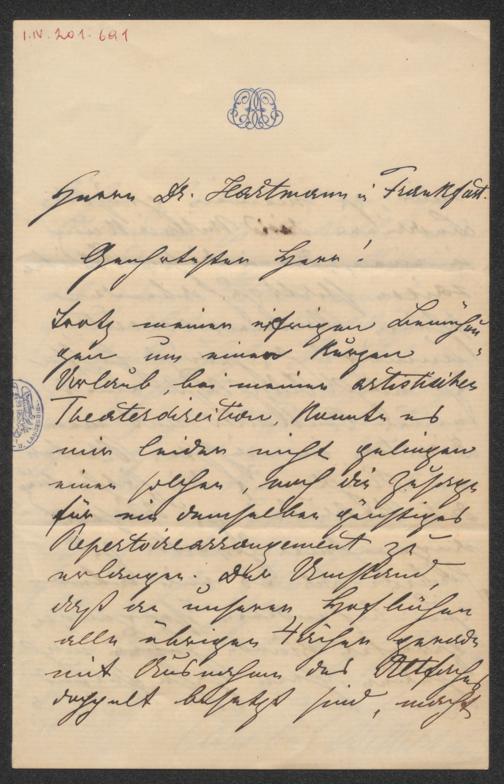 I.N. 201.691
Herrn Dr. Hartmann in Frankfurt.
Geehrtester Herr!
Trotz meiner eifrigen Bemühun-
gen um einen kurzen
Urlaub, bei meiner artistischen
Theaterdirection, konnte es
mir leider nicht gelingen
einen solchen, noch die Zusage
für ein demselben günstiges
Repertoirearrangement zu
erlangen. Der Umstand,
daß an unserer Hofbühne
alle übrigen Fächer gerade
mit Ausnahme des Altfaches
doppelt besetzt sind, macht